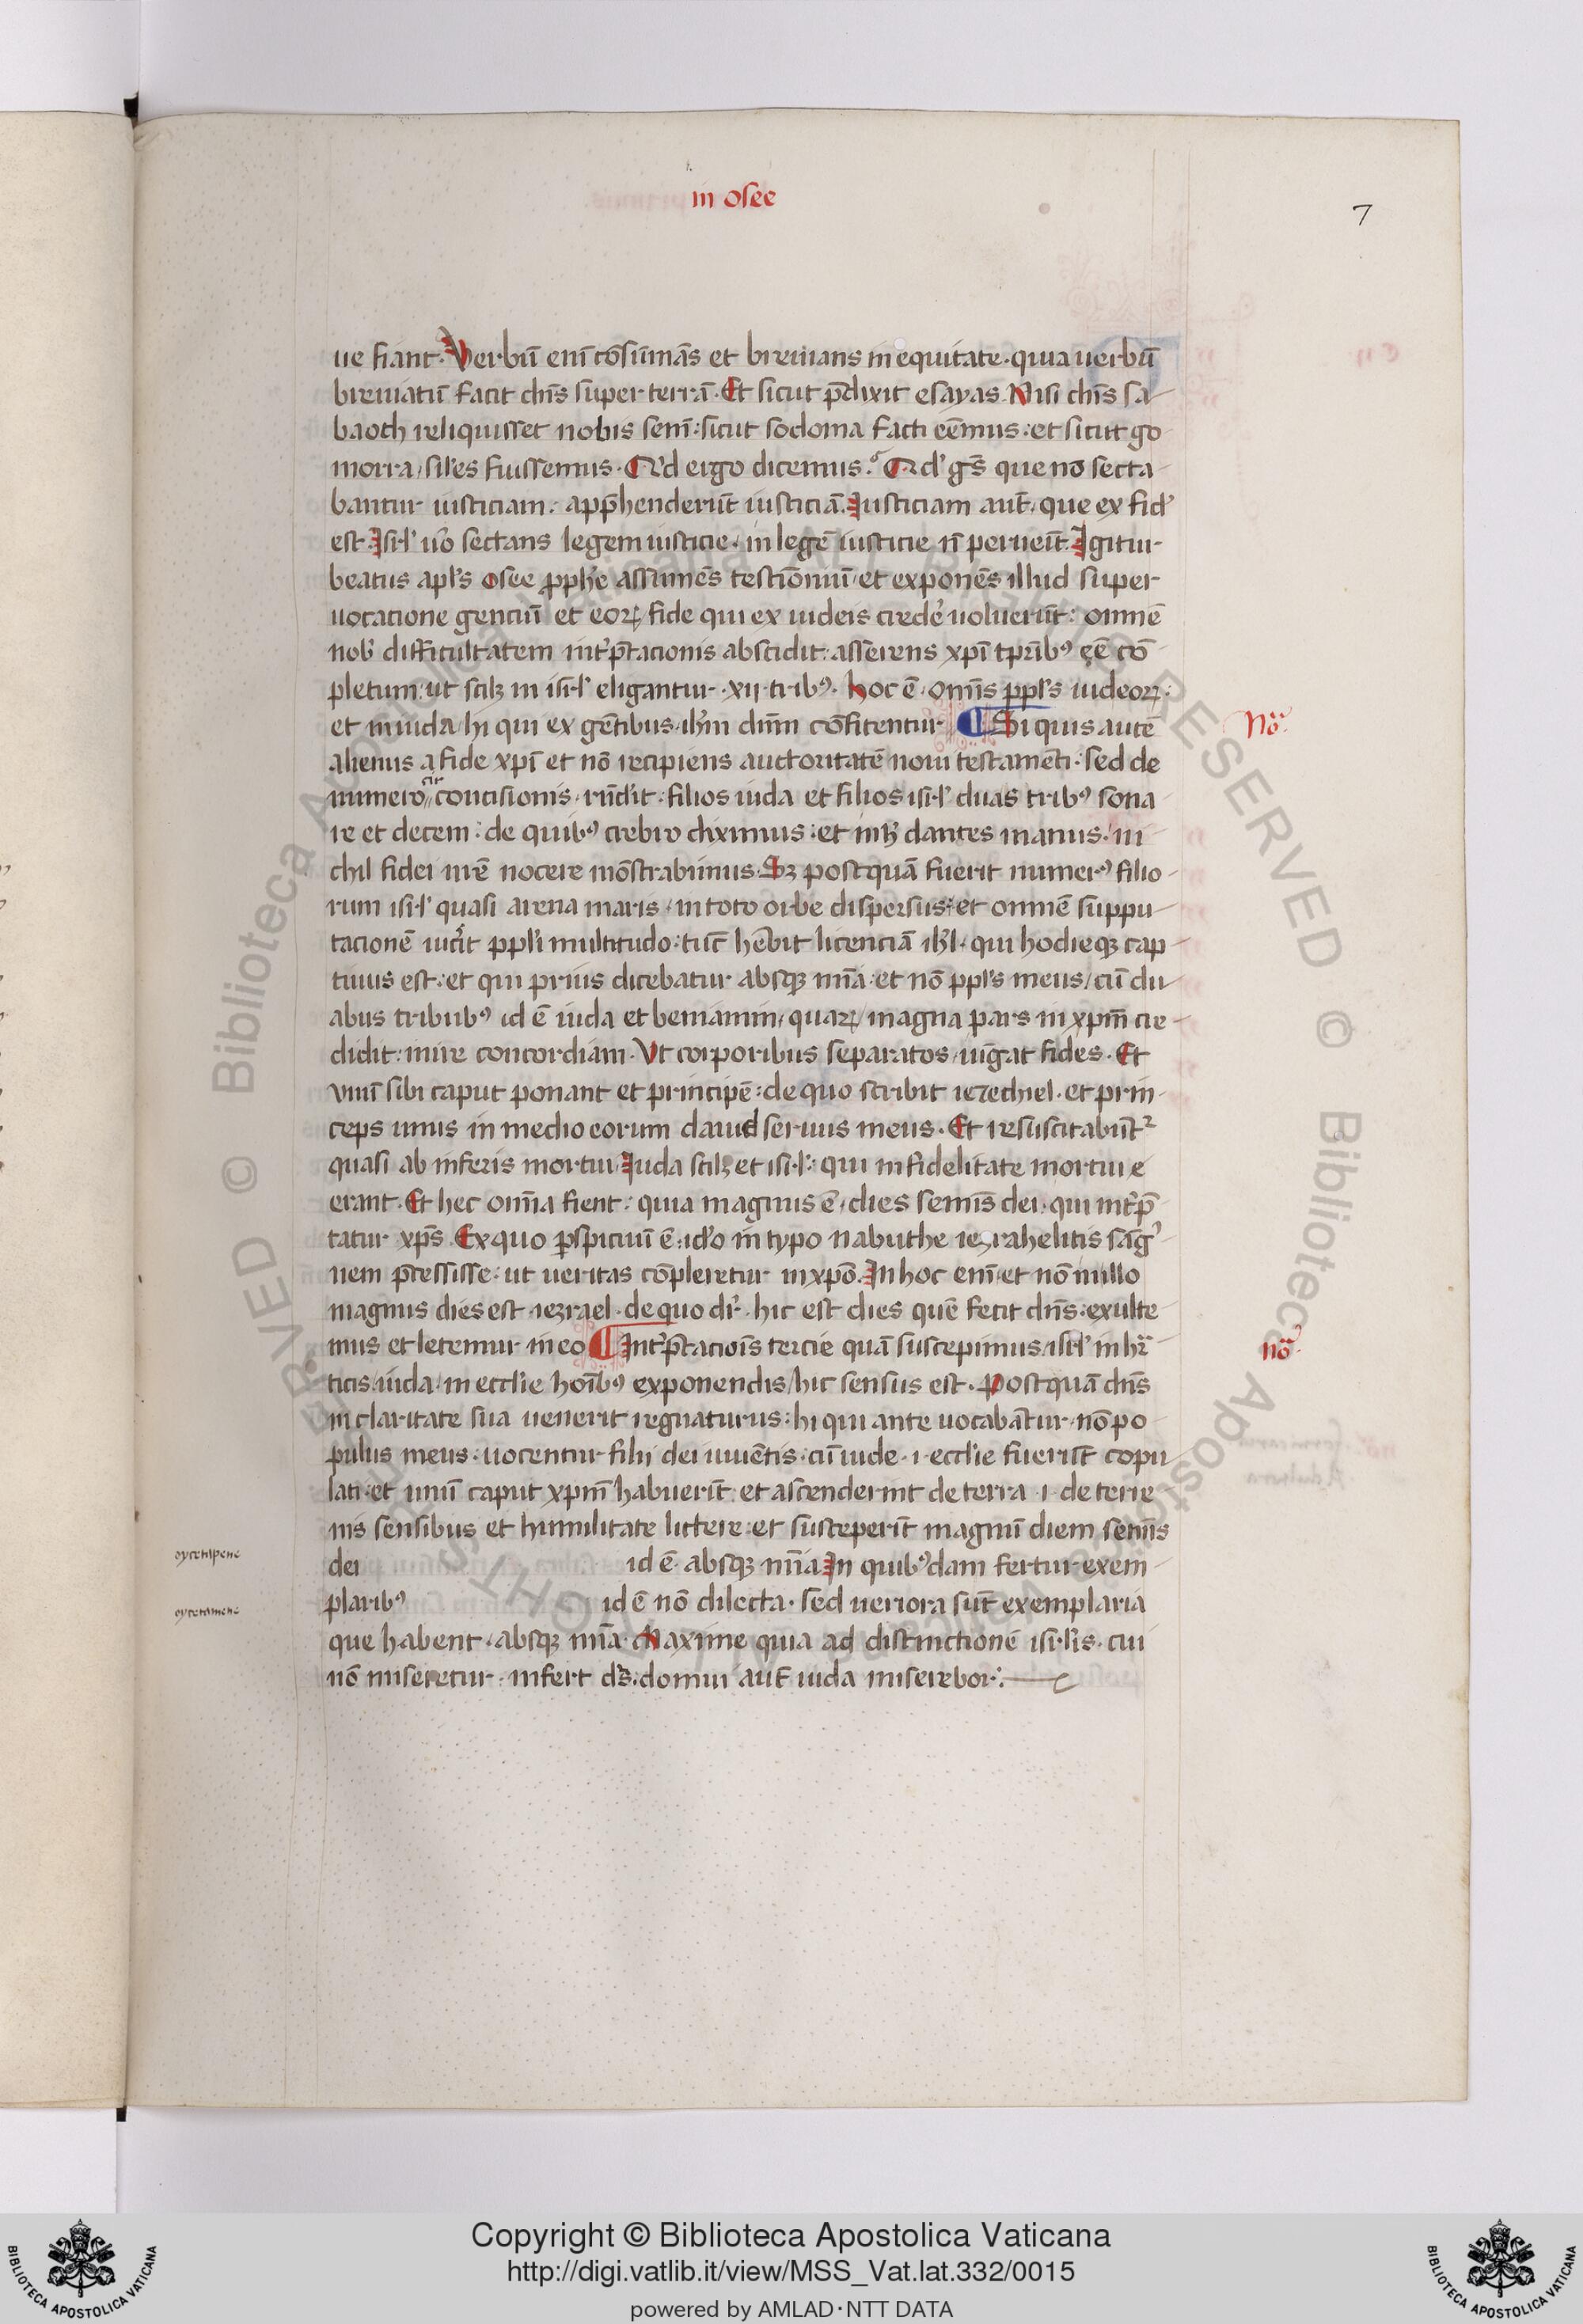 in osee
7
ue fiant. Verbū enī cōsūmās et breuians in equitate. quia uerbū
breuiatū faciet dn̄s super terrā. Et sicut p̄dixit esayas. Nisi dn̄s sa
baoth reliquisset nobis semē: sicut sodoma facti eēmus: et sicut go
morra, sil'es fuissemus. Q'd ergo dicemus? Q'd gn̄s que nō secta
bantur iusticiam: app̄henderūt iusticiā. Iusticiam aut̄, que ex fid'
est. Isr̄l' uō sectans legem iusticie, in legē iusticie n̄ peruēit. Igitur
beatus apl's osee pph'e assumēs testiōmiū, et exponēs illud super
uocatione gentiū et eoꝝ fide qui ex iudeis credē uoluerūt: omnē
nob' difficultatem int'p̄tacionis abscidit: asserens xp̄i tp̄rib⁹ eē cō
pletum: ut scilꝫ in isr̄l' eligantur .xij. trib⁹. hoc ē omīs ppl's iudeoꝝ:
et in iuda, hi qui ex gētibus ih̄m dn̄m cōfitentur ¶ Si quis autē
alienus a fide xp̄i et nō recipiens auctoritatē noui testamēti: sed de
numero concisionis, rn̄dit: filios iuda et filios isr̄l' duas trib⁹ sona
re et decem: de quib⁹ crebro diximus: et in hꝫ dantes manus: ni
chil fidei nr̄e nocere mōstrabimus. Sꝫ postquā fuerit numer⁹ filio
rum isr̄l' quasi arena maris, in toto orbe dispersus: et omnē suppu
tacionē uic'it ppl'i multitudo: tūc hēbit licenciā ihl', qui hodieqꝫ cap
tiuus est: et qui prius dicebatur absqꝫ mīa: et nō ppl's meus, cū du
abus tribub⁹ id ē iuda et beniamin, quaꝝ magna pars in xp̄m cre
didit: inire concordiam. Vt corporibus separatos, iūgat fides. Et
vnū sibi caput ponant et principē: de quo scribit iezechiel. et prin
ceps unus in medio eorum dauid seruus meus. Et resuscitabūt²
quasi ab inferis mortui. Iuda scilꝫ et isr̄l': qui infidelitate mortui e
erant. Et hec omīa fient: quia magnus ē, dies semīs dei, qui int'p̄
tatur xp̄s. Ex quo p̱spicuū ē, id'o in typo nabuthe iezrahelitis sāg'
nem p̄cessisse: ut ueritas cōpleretur in xp̄o. In hoc enī, et nō in illo
magnus dies est iezrael. de quo dr̄. hic est dies quē fecit dn̄s: exulte
mus et letemur in eo ¶ Int'p̄tacioīs tercie quā suscepimus, isr̄l' in hr̄
ticis, iuda, in eccl'ie hoīb⁹ exponendis, hic sensus est. Postquā dn̄s
in claritate sua uenerit regnaturus: hi qui ante uocabātur, nō po
pulus meus: uocentur filij dei uiuētis: cū iude .i. eccl'ie fuerīt copu
lati: et unū caput xp̄m habuerīt: et ascenderint de terra .i. de terre
nis sensibus et humilitate littere: et susceperīt magnū diem semīs
dei id ē absqꝫ mīa. In quib⁹dam fertur exem
plarib⁹ id ē nō dilecta. sed ueriora sūt exemplaria
que habent, absqꝫ mīa. Maxime quia ad distinctionē isr̄l'is. cui
nō miseretur: infert ds̄: domui aut̄ iuda miserebor:
Nōa
nōa